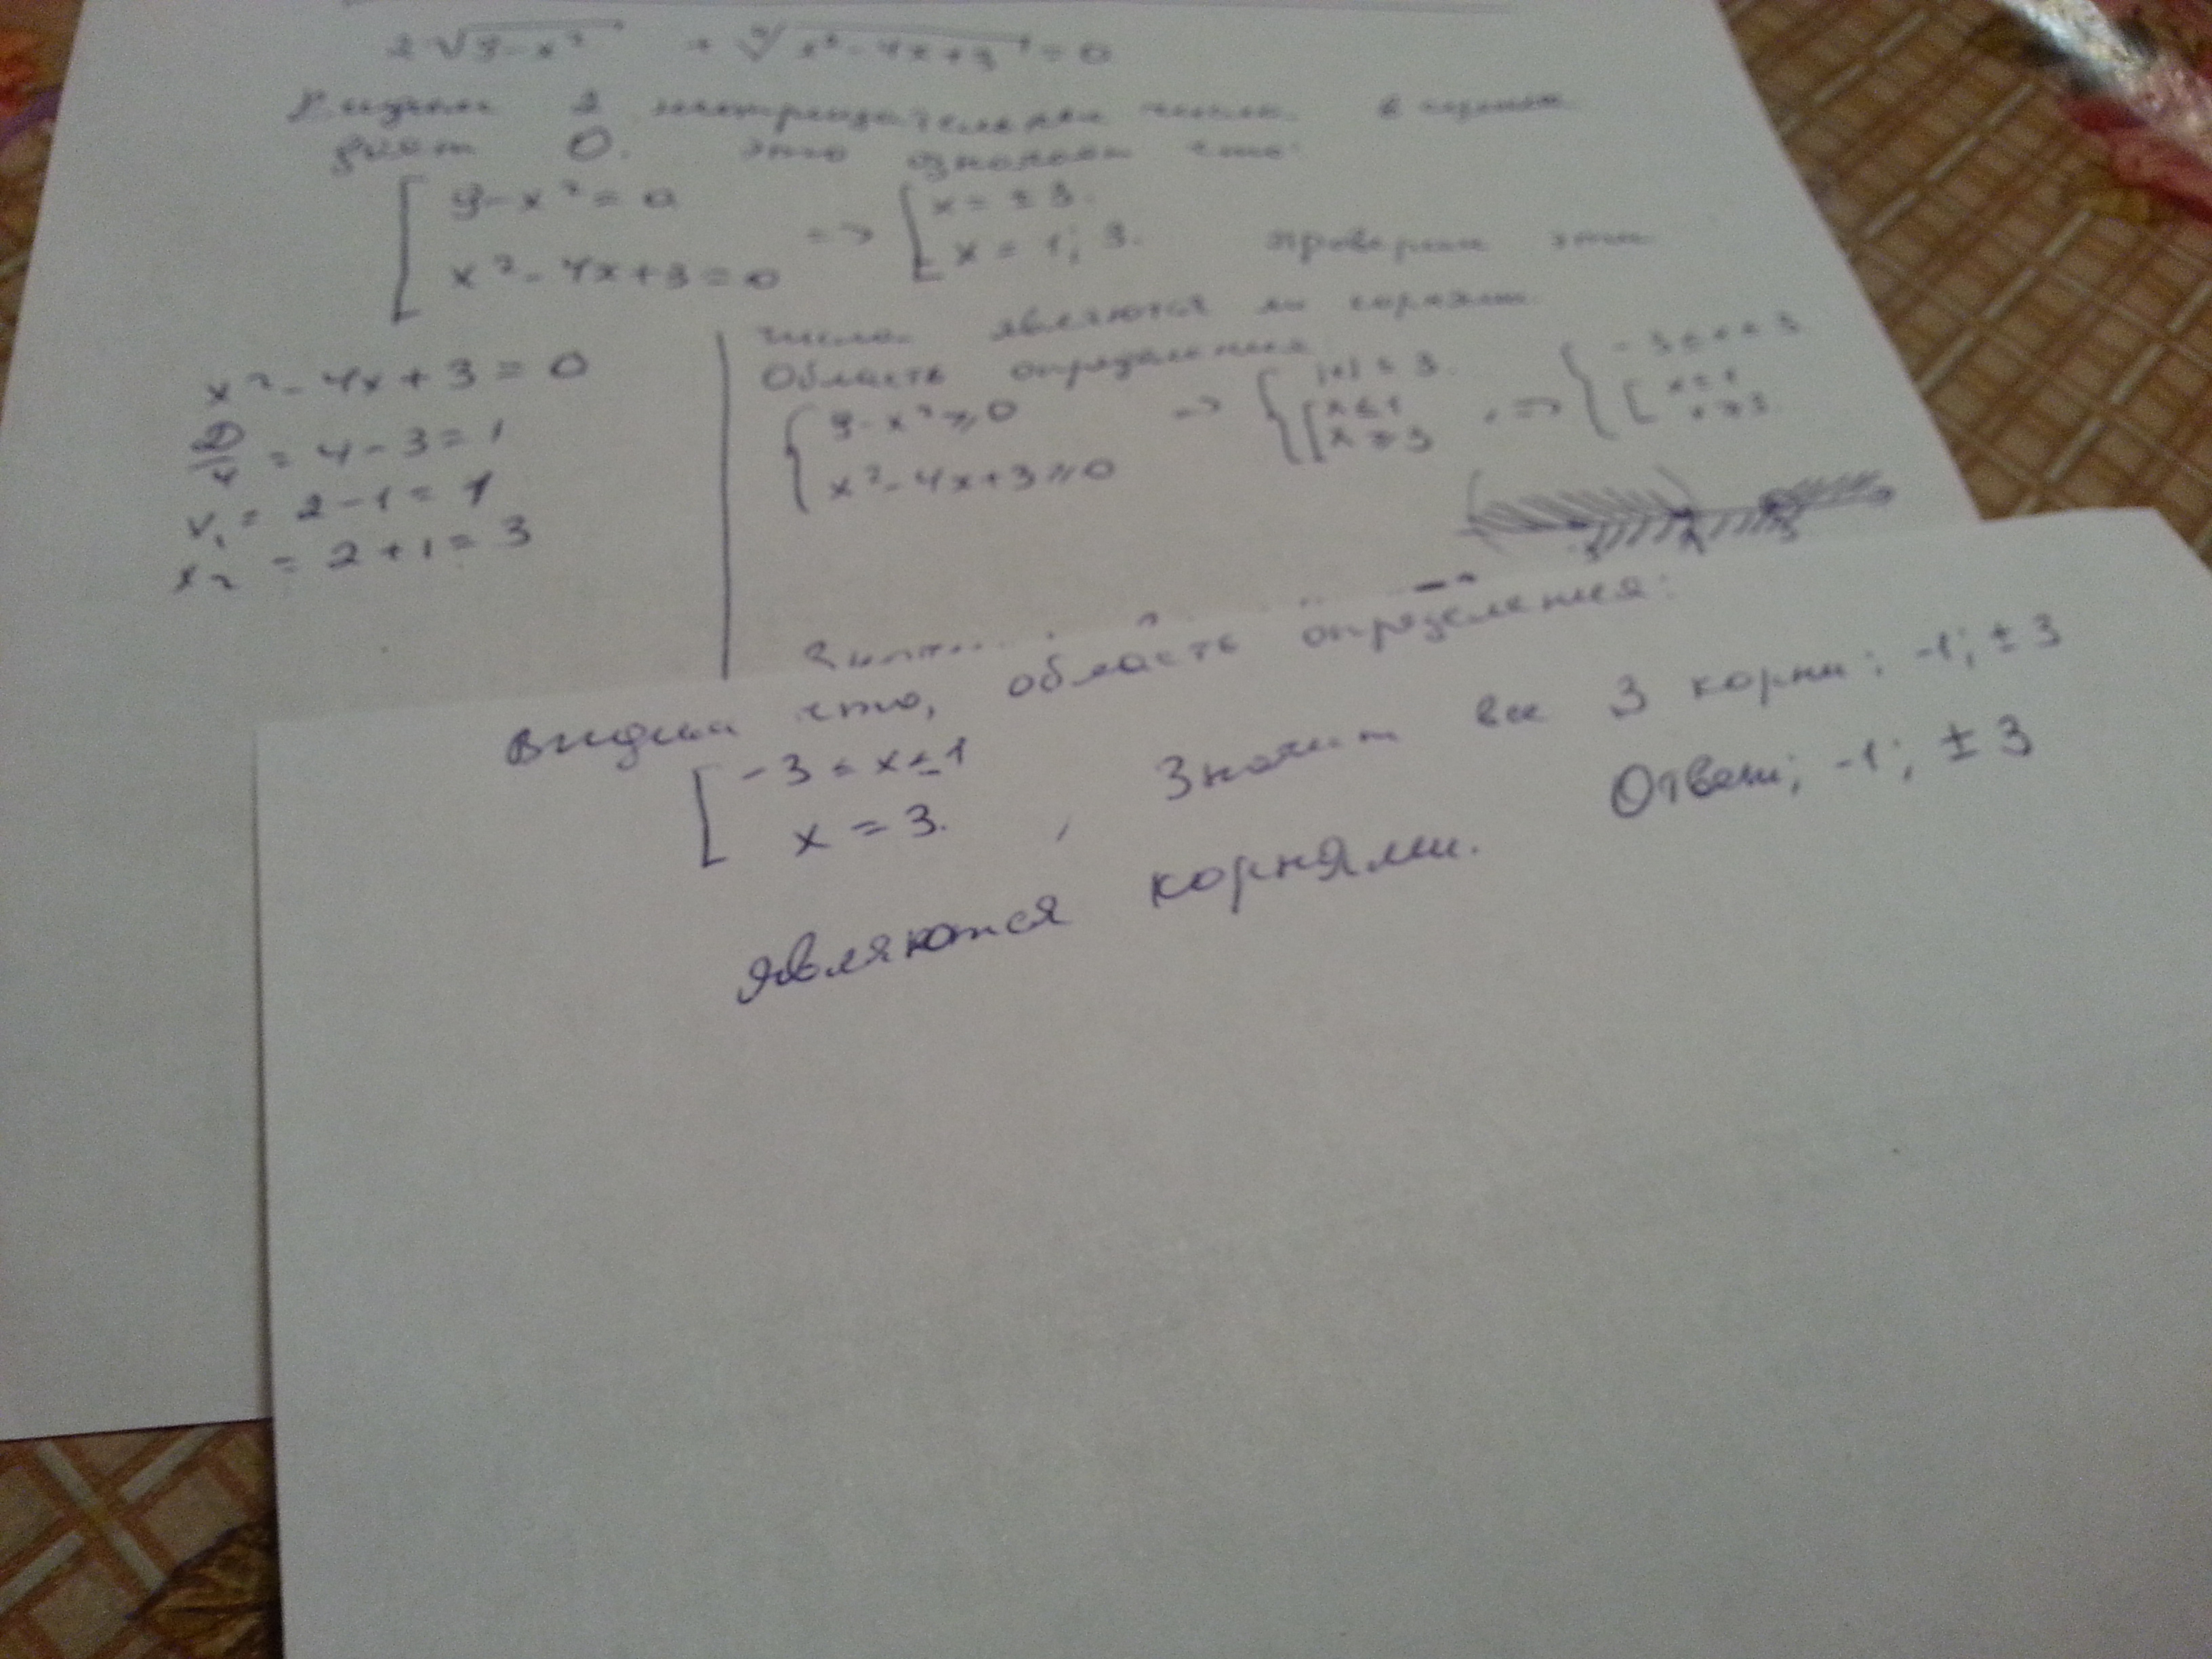 2√9-x² + ∜x²-4x+3 = 0
Видим 2 неотрицательных числа в сумме
дают 0. Это означает что:
[ 9-x² = 0
x²-4x+3 = 0
=> [ x = ±3.
x = 1; 3. проверим эти
числа являются ли корнями.
x²-4x+3 = 0
D/4 = 4-3 = 1
x₁ = 2-1 = 1
x₂ = 2+1 = 3
Область определения
{ 9-x² ≥ 0
x²-4x+3 ≥ 0
=> { |x| ≤ 3.
[ x ≤ 1
x ≥ 3
=> { -3 ≤ x ≤ 3
[ x ≤ 1
x ≥ 3
-3 1 3
Видим что, область определения:
[ -3 ≤ x ≤ 1
x = 3.
, Значит все 3 корни: -1; ±3
являются корнями. Ответ; -1; ±3